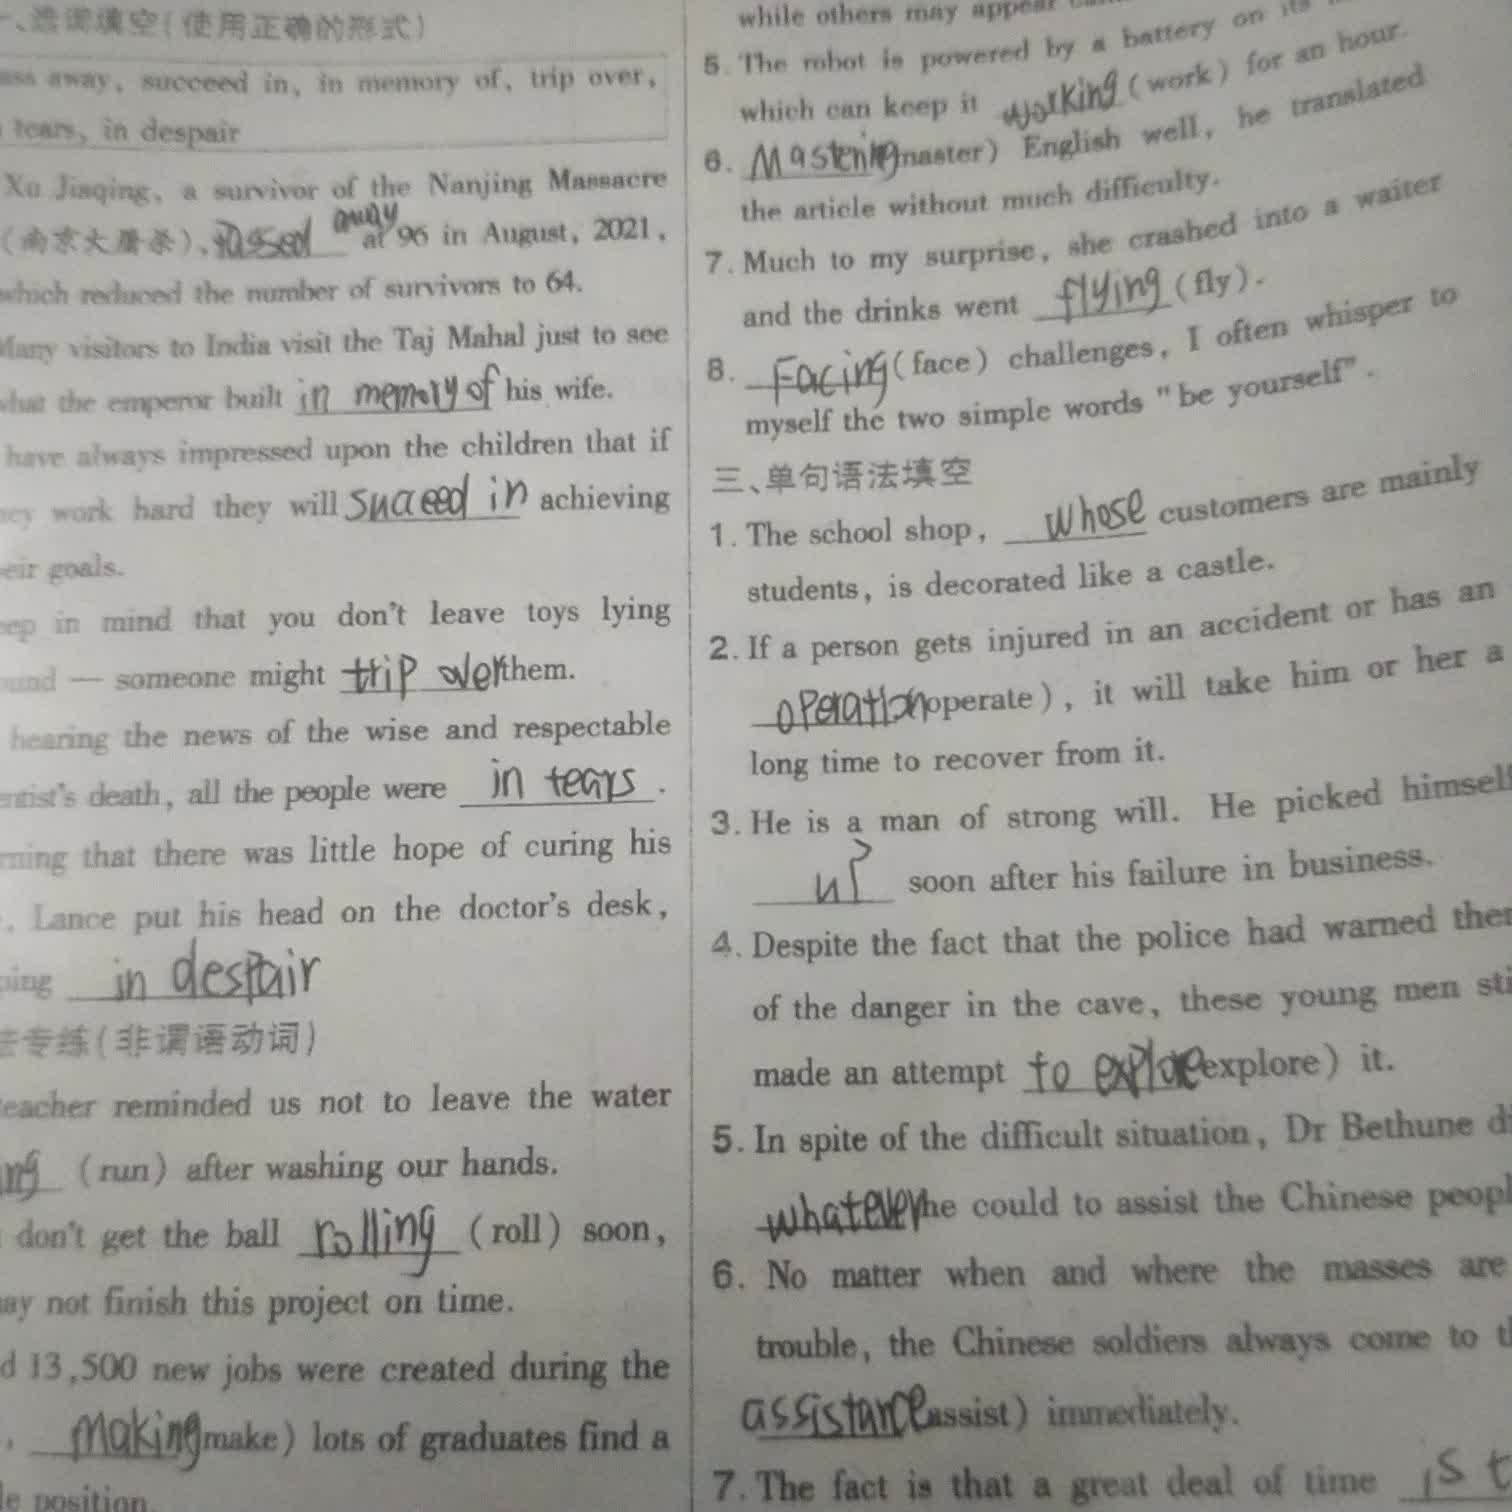 、选词填空(使用正确的形式)
ass away, succeed in, in memory of, trip over,
tears, in despair
Xu Jiaqing, a survivor of the Nanjing Massacre
(南京大屠杀), passed away at 96 in August, 2021,
which reduced the number of survivors to 64.
Many visitors to India visit the Taj Mahal just to see
what the emperor built in memory of his wife.
have always impressed upon the children that if
hey work hard they will succeed in achieving
eir goals.
eep in mind that you don't leave toys lying
ound — someone might trip over them.
hearing the news of the wise and respectable
entist's death, all the people were in tears.
rning that there was little hope of curing his
. Lance put his head on the doctor's desk,
ping in despair
法专练(非谓语动词)
teacher reminded us not to leave the water
ing (run) after washing our hands.
don't get the ball rolling (roll) soon,
ay not finish this project on time.
d 13,500 new jobs were created during the
, making make) lots of graduates find a
le position.
while others may appear
5. The robot is powered by a battery on its
which can keep it working (work) for an hour.
6. Mastering master) English well, he translated
the article without much difficulty.
7. Much to my surprise, she crashed into a waiter
and the drinks went flying (fly).
8. Facing (face) challenges, I often whisper to
myself the two simple words "be yourself".
三、单句语法填空
1. The school shop, whose customers are mainly
students, is decorated like a castle.
2. If a person gets injured in an accident or has an
operation operate), it will take him or her a
long time to recover from it.
3. He is a man of strong will. He picked himself
up soon after his failure in business.
4. Despite the fact that the police had warned them
of the danger in the cave, these young men sti
made an attempt to explore explore) it.
5. In spite of the difficult situation, Dr Bethune di
whatever he could to assist the Chinese peopl
6. No matter when and where the masses are
trouble, the Chinese soldiers always come to th
assistance assist) immediately.
7. The fact is that a great deal of time is t